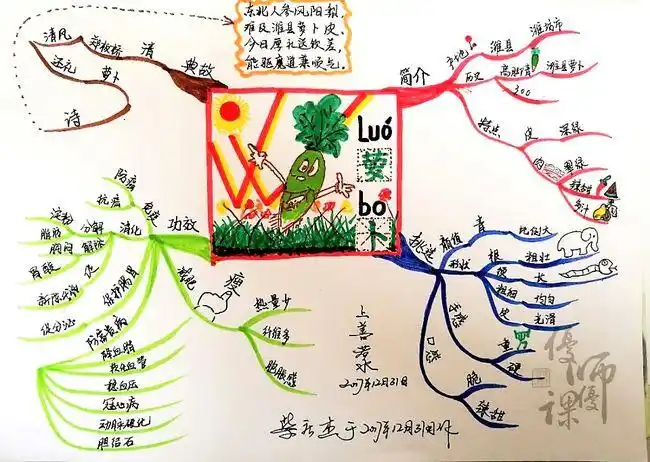 东北人参凤阳梨
难及潍县萝卜皮
今日厚礼送钦差
能驱魔道兼顺气
清风
郑板桥
清
典故
送礼
萝卜
诗
简介
产地
潍县
潍坊市
历史
高脚青
潍县萝卜
300
特点
皮
深绿
肉
翠绿
辣甜
多汁
Luó
萝
bo
卜
功效
免疫
防癌
抗癌
消化
分解
淀粉
脂肪
解酥
胃酸
促
新陈代谢
促分泌
保护肠胃
减肥
瘦
热量少
纤维多
饱胀感
防富贵病
降血脂
软化血管
稳血压
冠心病
动脉硬化
胆结石
挑选
颜值
青
比例大
形状
根
粗壮
长
粗细
均匀
皮
光滑
手感
重
硬
口感
脆
辣甜
上善若水
2017年12月31日
于2017年12月31日作
优师课
师优